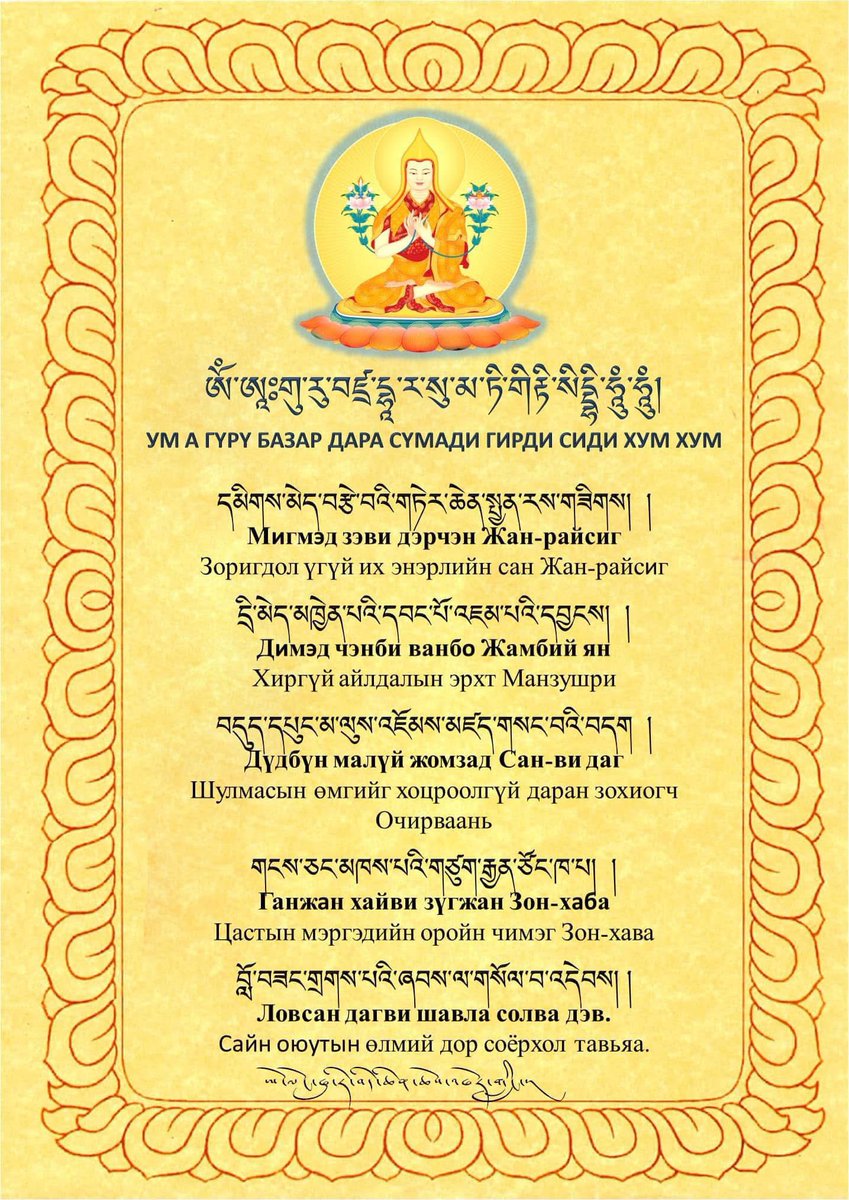 ༀ་ཨཱཿགུ་རུ་བཛྲ་དྷཱ་ར་སུ་མ་ཏི་ཀིརྟི་སིདྡྷི་ཧཱུྃ་ཧཱུྃ།
УМ А ГҮРҮ БАЗАР ДАРА СҮМАДИ ГИРДИ СИДИ ХУМ ХУМ
དམིགས་མེད་བརྩེ་བའི་གཏེར་ཆེན་སྤྱན་རས་གཟིགས། །
Мигмэд зэви дэрчэн Жан-райсиг
Зоригдол үгүй их энэрлийн сан Жан-райсиг
དྲི་མེད་མཁྱེན་པའི་དབང་པོ་འཇམ་པའི་དབྱངས། །
Димэд чэнби ванбо Жамбий ян
Хиргүй айлдалын эрхт Манзушри
བདུད་དཔུང་མ་ལུས་འཇོམས་མཛད་གསང་བའི་བདག །
Дүдбүн малүй жомзад Сан-ви даг
Шулмасын өмгийг хоцроолгүй даран зохиогч
Очирваань
གངས་ཅང་མཁས་པའི་གཙུག་རྒྱན་ཙོང་ཁ་པ། །
Ганжан хайви зүгжан Зон-хаба
Цастын мэргэдийн оройн чимэг Зон-хава
བློ་བཟང་གྲགས་པའི་ཞབས་ལ་གསོལ་བ་འདེབས། །
Ловсан дагви шавла солва дэв.
Сайн оюутын өлмий дор соёрхол тавьяа.